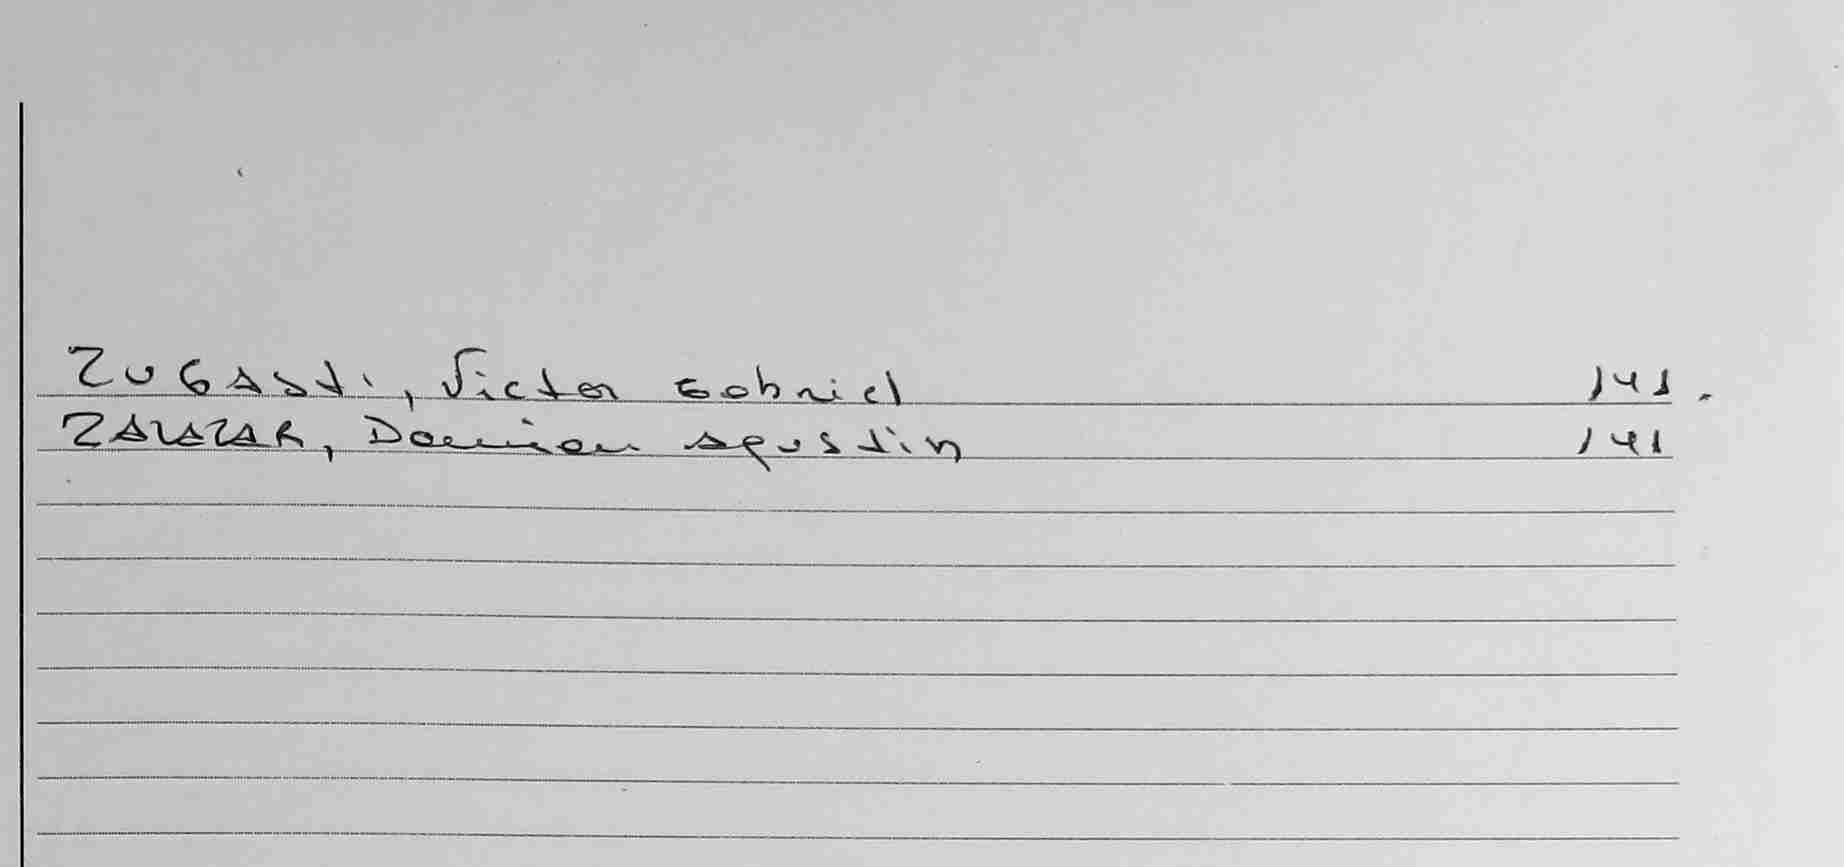 ZUGASTI, Victor Gabriel 141.
ZALAZAR, Damian Agustin 141